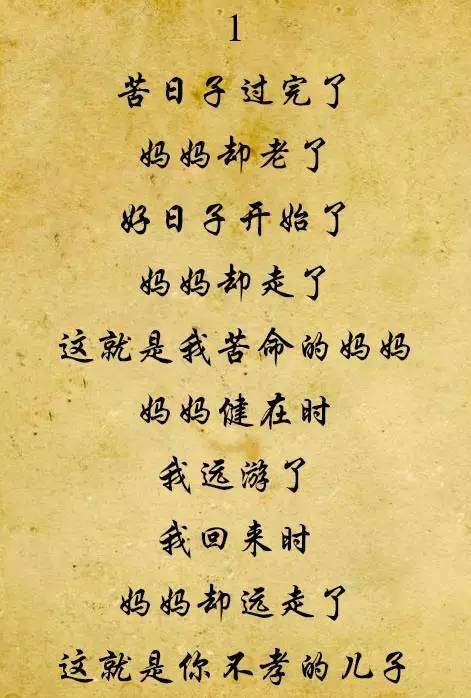 1
苦日子过完了
妈妈却老了
好日子开始了
妈妈却走了
这就是我苦命的妈妈
妈妈健在时
我远游了
我回来时
妈妈却远走了
这就是你不孝的儿子